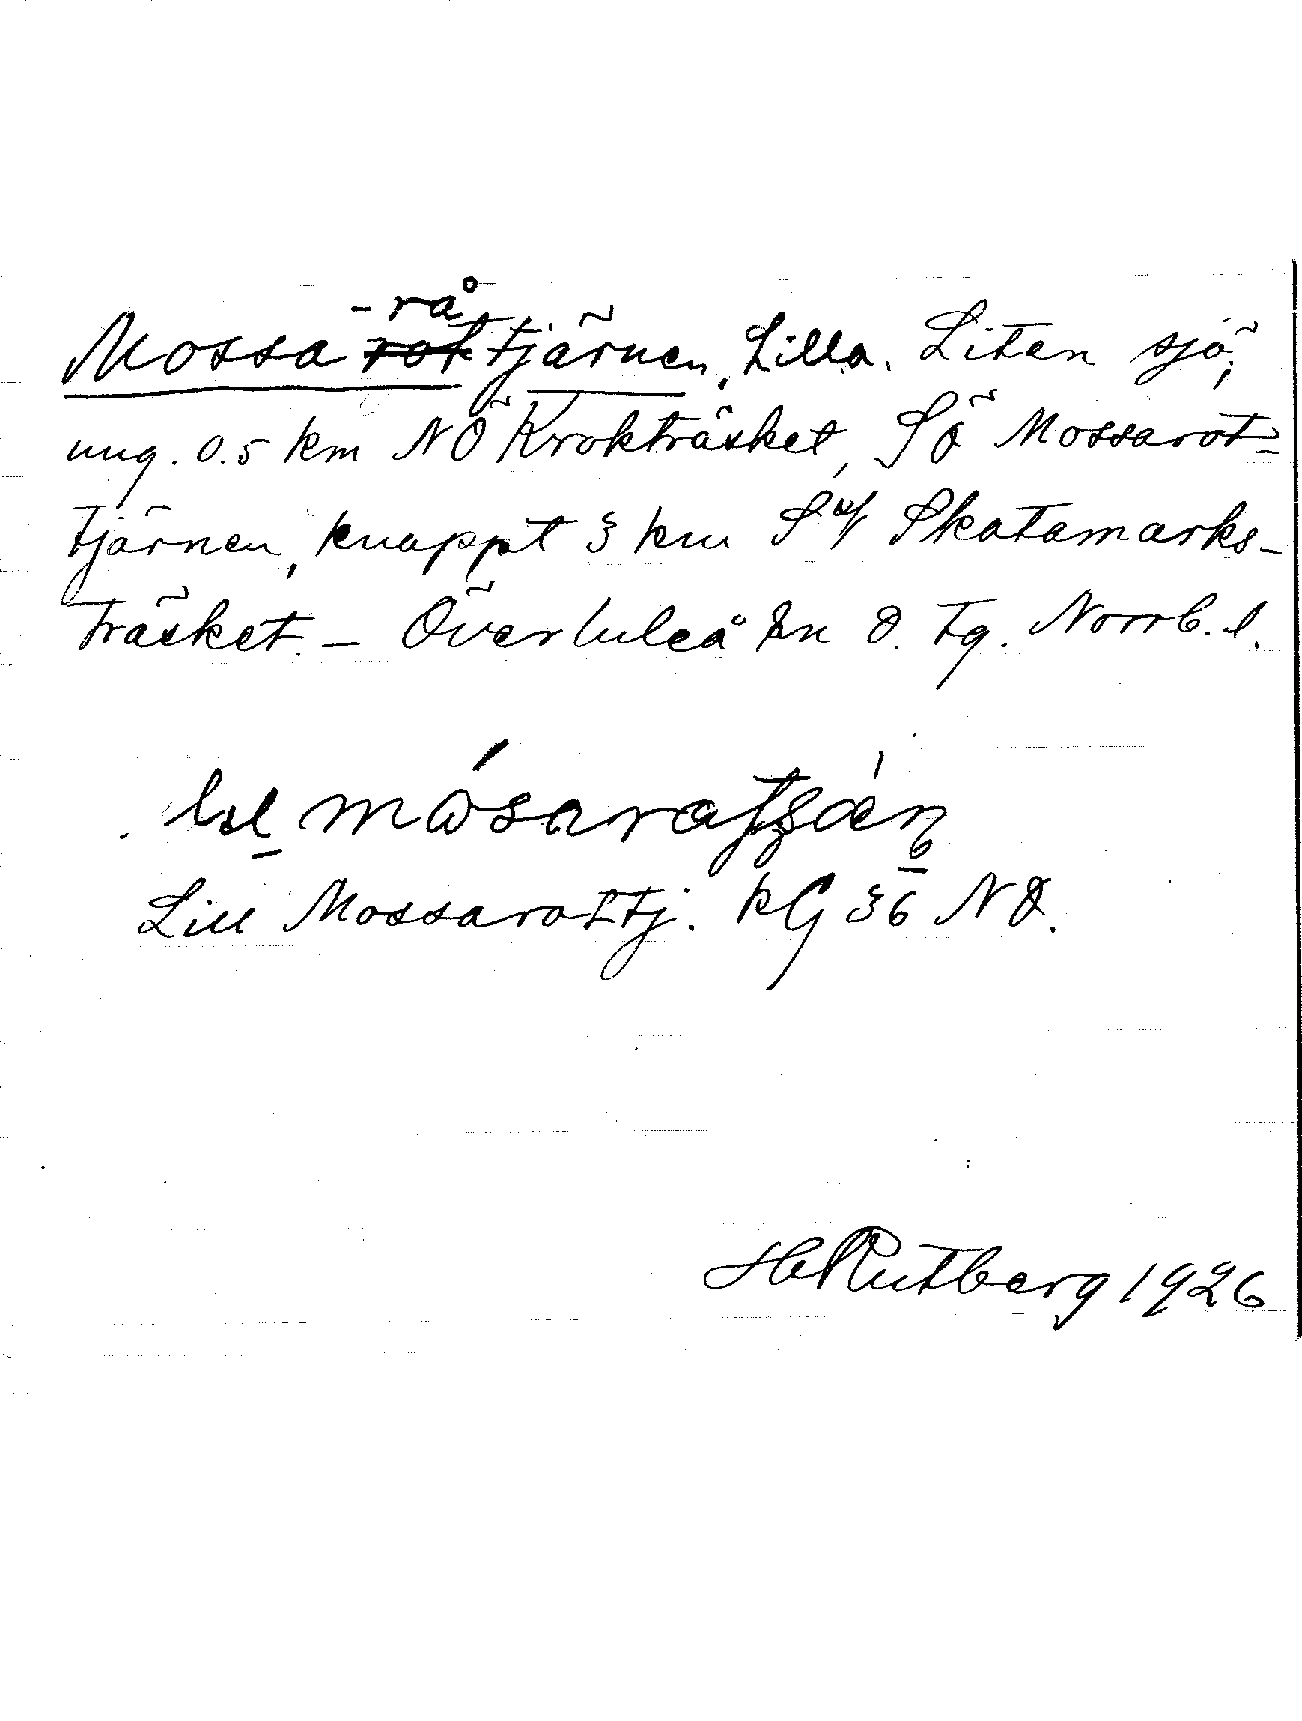 -rå
Mossa rottjärnen, Lilla. Liten sjö,
ung. 0.5 km NÖ Kroktr​äsket, SÖ Mossarot-
tjärnen, knappt 3 km S of Skatamarks-
träsket. – Överluleå sn Ö. tg. Norrb. l.
Lill Mossarottj. KG 36 NÖ.
H Rutberg 1926